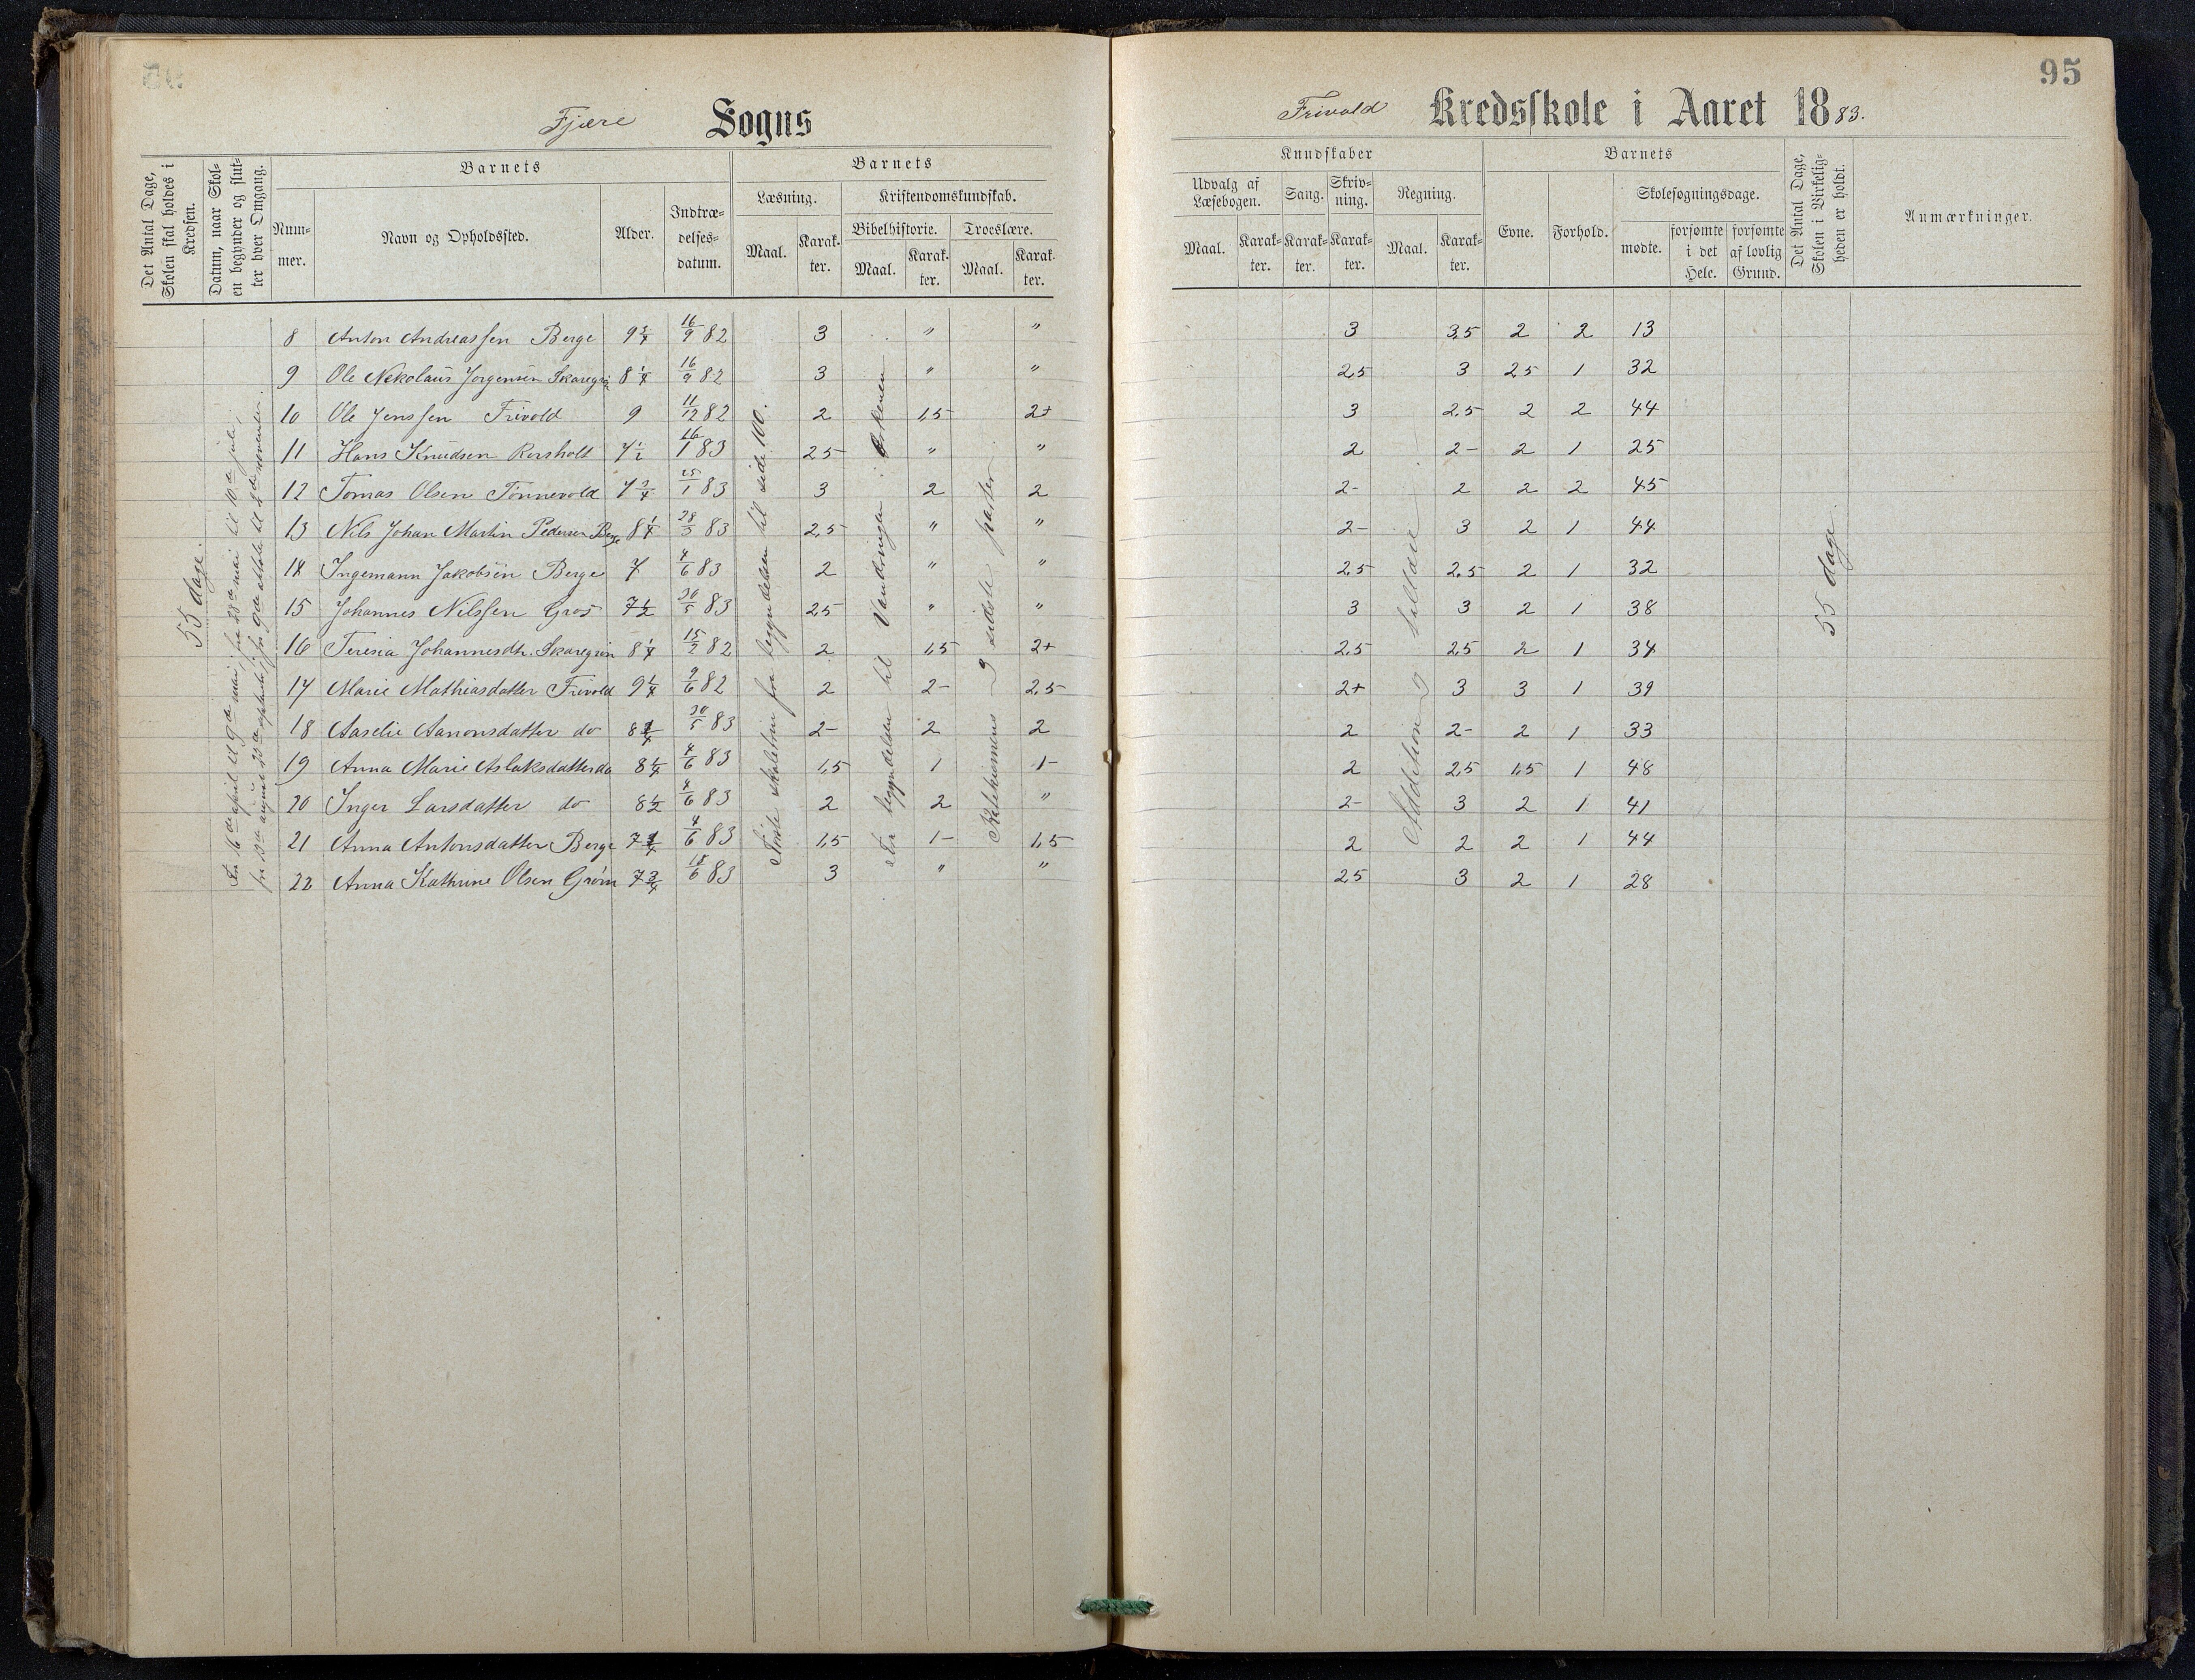 95
Fjære Sogns
Frivold Kredsskole i Aaret 1883.
Det Antal Dage, Skolen skal holdes i Kredsen.
Datum, naar Skolen begynder og slutter hver Omgang.
Barnets
Nummer.
Navn og Opholdssted.
Alder.
Indtrædelsesdatum.
Barnets
Læsning.
Maal.
Karakter.
Kristendomskundskab.
Bibelhistorie.
Maal.
Karakter.
Troeslære.
Maal.
Karakter.
Kundskaber
Udvalg af Læsebogen.
Maal.
Karakter.
Sang.
Karakter.
Skrivning.
Karakter.
Regning.
Maal.
Karakter.
Barnets
Evne.
Forhold.
Skolesøgningsdage.
mødte.
forsømte i det Hele.
forsømte af lovlig Grund.
Det Antal Dage, Skolen i Virkeligheden er holdt.
Anmærkninger.
55 dage.
til side 100.
Additition og
55 dage
8 Anton Andreassen Berge 9 3/4 16/9 82 3 " " 3 3,5 2 2 13
9 Ole Nekolaus Jørgensen 8 1/4 16/9 82 3 " " 2,5 3 2,5 1 32
10 Ole Jenssen Frivold 9 11/12 82 2 1,5 2+ 3 2,5 2 2 44
11 Hans Knudsen 7 1/2 16/1 83 2,5 " " 2 2- 2 1 25
12 Tomas Olsen Tønnevold 7 3/4 25/1 83 3 2 2 2- 2 2 2 45
13 Nils Johan Martin Pedersen Berge 8 1/4 28/5 83 2,5 " " 2- 3 2 1 44
14 Ingemann Jakobsen Berge 7 4/6 83 2 " " 2,5 2,5 2 1 32
15 Johannes Nilssen Gros 7 1/2 30/5 83 2,5 " " 3 3 2 1 38
16 Teresia Johannesdtr. 8 1/4 15/2 82 2 1,5 2+ 2,5 2,5 2 1 34
17 Marie Mathiasdatter Frivold 9 1/4 9/6 82 2 2- 2,5 2+ 3 3 1 39
18 Aaselie Aanonsdatter do 30/5 83 2- 2 2 2 2- 2 1 33
19 Anna Marie Aslaksdatter do 8 1/4 4/6 83 1,5 1 1- 2 2,5 1,5 1 48
20 Inger Larsdatter do 8 1/2 4/6 83 2 2 " 2- 3 2 1 41
21 Anna Antonsdatter Berge 4/6 83 1,5 1- 1,5 2 2 2 1 44
22 Anna Kathrine Olsen 7 3/4 18/6 83 3 " " 2,5 3 2 1 28